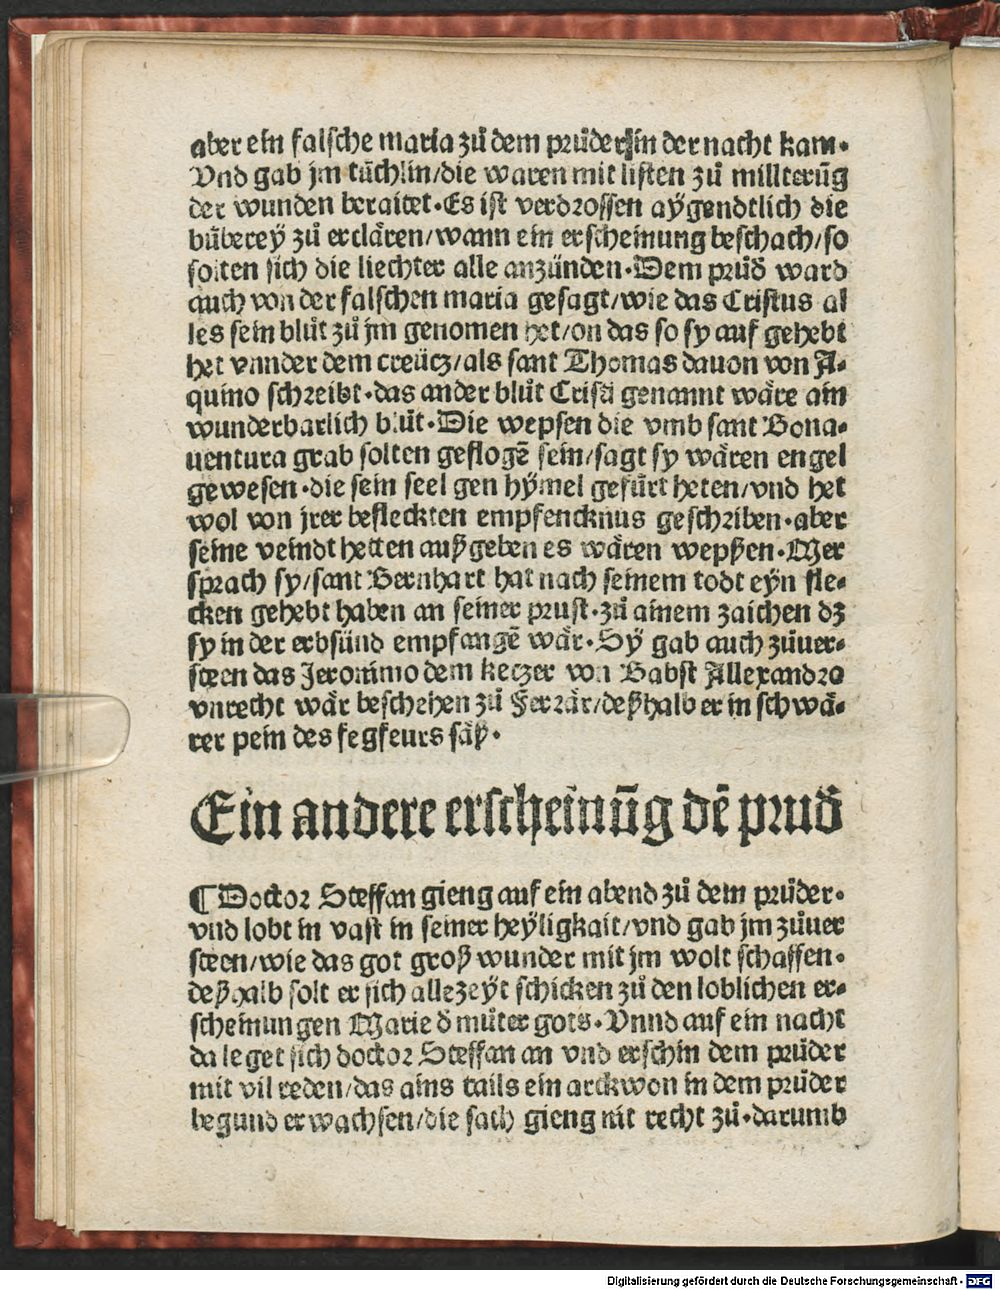 aber ein falsche maria zů dem průder in der nacht kam.
Vnd gab jm tüchlin/die waren mit listen zů millterūg
der wunden beraitet. Es ist verdrossen aÿgendtlich die
bůbereÿ zů erclären/wann ein erscheinung beschach/so
solten sich die liechter alle anzünden. Dem průd̄ ward
auch von der falschen maria gesagt/wie das Cristus al
les sein blůt zů jm genomen het/on das so sy auf gehebt
het vnnder dem creütz/als sant Thomas dauon von A-
quino schreibt. das ander blůt Cristi genannt wäre ain
wunderbarlich blůt. Die wepsen die vmb sant Bona-
uentura grab solten geflogē sein/sagt sy wären engel
gewesen. die sein seel gen hÿmel gefürt heten/vnd het
wol von jrer befleckten empfencknus geschriben. aber
seine veindt hetten außgeben es wären wepßen. Mer
sprach sy/sant Bernhart hat nach seinem todt eÿn fle-
cken gehebt haben an seiner prust. zů ainem zaichen dz
sy in der erbsünd empfangē wär. Sÿ gab auch zůuer-
steen das Jeronimo dem ketzer von Babst Allexandro
vnrecht wär beschehen zů Ferrär/deßhalb er in schwä-
rer pein des fegfeurs säß.
Ein andere erscheinūg dē prud̄
¶ Doctor Steffan gieng auf ein abend zů dem průder.
vnd lobt in vast in seiner heÿligkait/vnd gab jm zůuer
steen/wie das got groß wunder mit jm wolt schaffen.
deßhalb solt er sich allezeÿt schicken zů den loblichen er-
scheinungen Marie d̄ můter gots. Vnnd auf ein nacht
da leget sich doctor Steffan an vnd erschin dem průder
mit vil reden/das ains tails ein arckwon in dem průder
begund erwachsen/die sach gieng nit recht zů. darumb
Digitalisierung gefördert durch die Deutsche Forschungsgemeinschaft - DFG